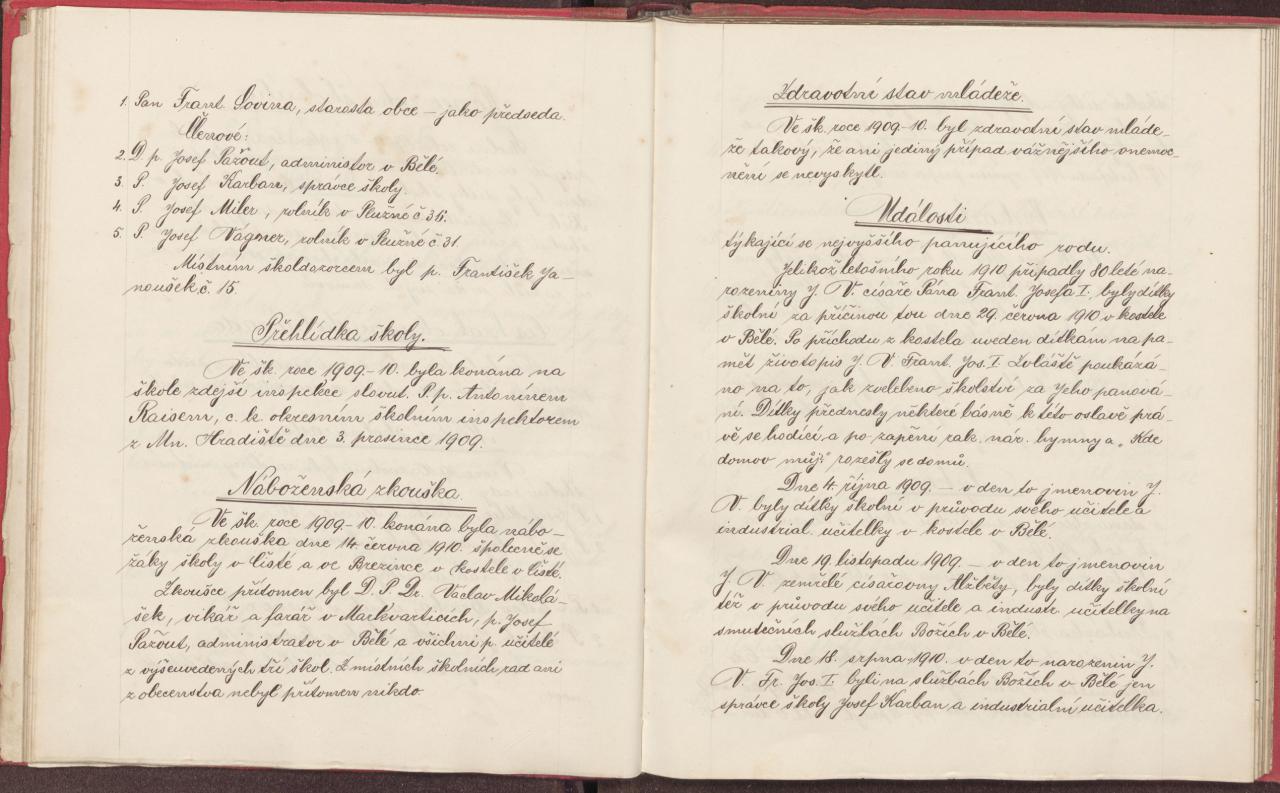 1. Pan Frant. Sovina, starosta obce – jako předseda.
Členové:
2. D. p. Josef Pažout, administor v Bělé.
3. P. Josef Karban, správce školy.
4. P. Josef Miler, rolník v Plužné č 36.
5. P. Josef Vágner, rolník v Plužné č. 31.
Místním školdozorcem byl p. František Ja-
noušek č. 15.
Přehlídka školy.
Ve šk. roce 1909–10. byla konána na
škole zdejší inspekce slovut. P. p. Antonínem
Raisem, c. k. okresním školním inspektorem
z Mn. Hradiště dne 3. prosince 1909.
Náboženská zkouška.
Ve šk. roce 1909–10. konána byla nábo-
ženská zkouška dne 14. června 1910. společně se
žáky školy v Čisté a ve Brezince v kostele v Čisté.
Zkoušce přítomen byl D. P. Dr. Václav Mikolá-
šek, vikář a farář v Markvarticích, p. Josef
Pažout, administrator v Bělé a všichni p. učitelé
z výšeuvedených tří škol. Z místních školních rad ani
z obecenstva nebyl přítomen nikdo
Zdravotní stav mládeže.
Ve šk. roce 1909–10. byl zdravotní stav mláde-
že takový, že ani jediný případ vážnějšího onemoc-
nění se nevyskytl.
Události
týkající se nejvyššího panujícího rodu.
Jelikož letošního roku 1910 připadly 80 leté na-
rozeniny J. V. císaře Pána Frant. Josefa I., byly dítky
školní za příčinou tou dne 29. června 1910 v kostele
v Bělé. Po příchodu z kostela uveden dítkám na pa-
mět životopis J. V. Frant. Jos. I. Zvláště poukázá-
no na to, jak zvelebeno školství za Jeho panová-
ní. Dítky přednesly některé básně k této oslavě prá-
vě se hodící a po zapění rak. nár. hymny a „Kde
domov můj“ rozešly se domů.
Dne 4. října 1909. – v den to jmenovin J.
V. byly dítky školní v průvodu svého učitele a
industrial. učitelky v kostele v Bělé.
Dne 19. listopadu 1909. – v den to jmenovin
J. V. zemřelé císařovny Alžběty, byly dítky školní
též v průvodu svého učitele a industr. učitelky na
smutečních službách Božích v Bělé.
Dne 18. srpna 1910. v den to narozenin J.
V. Fr. Jos. I. byli na službách Božích v Bělé jen
správce školy Josef Karban a industrialní učitelka.